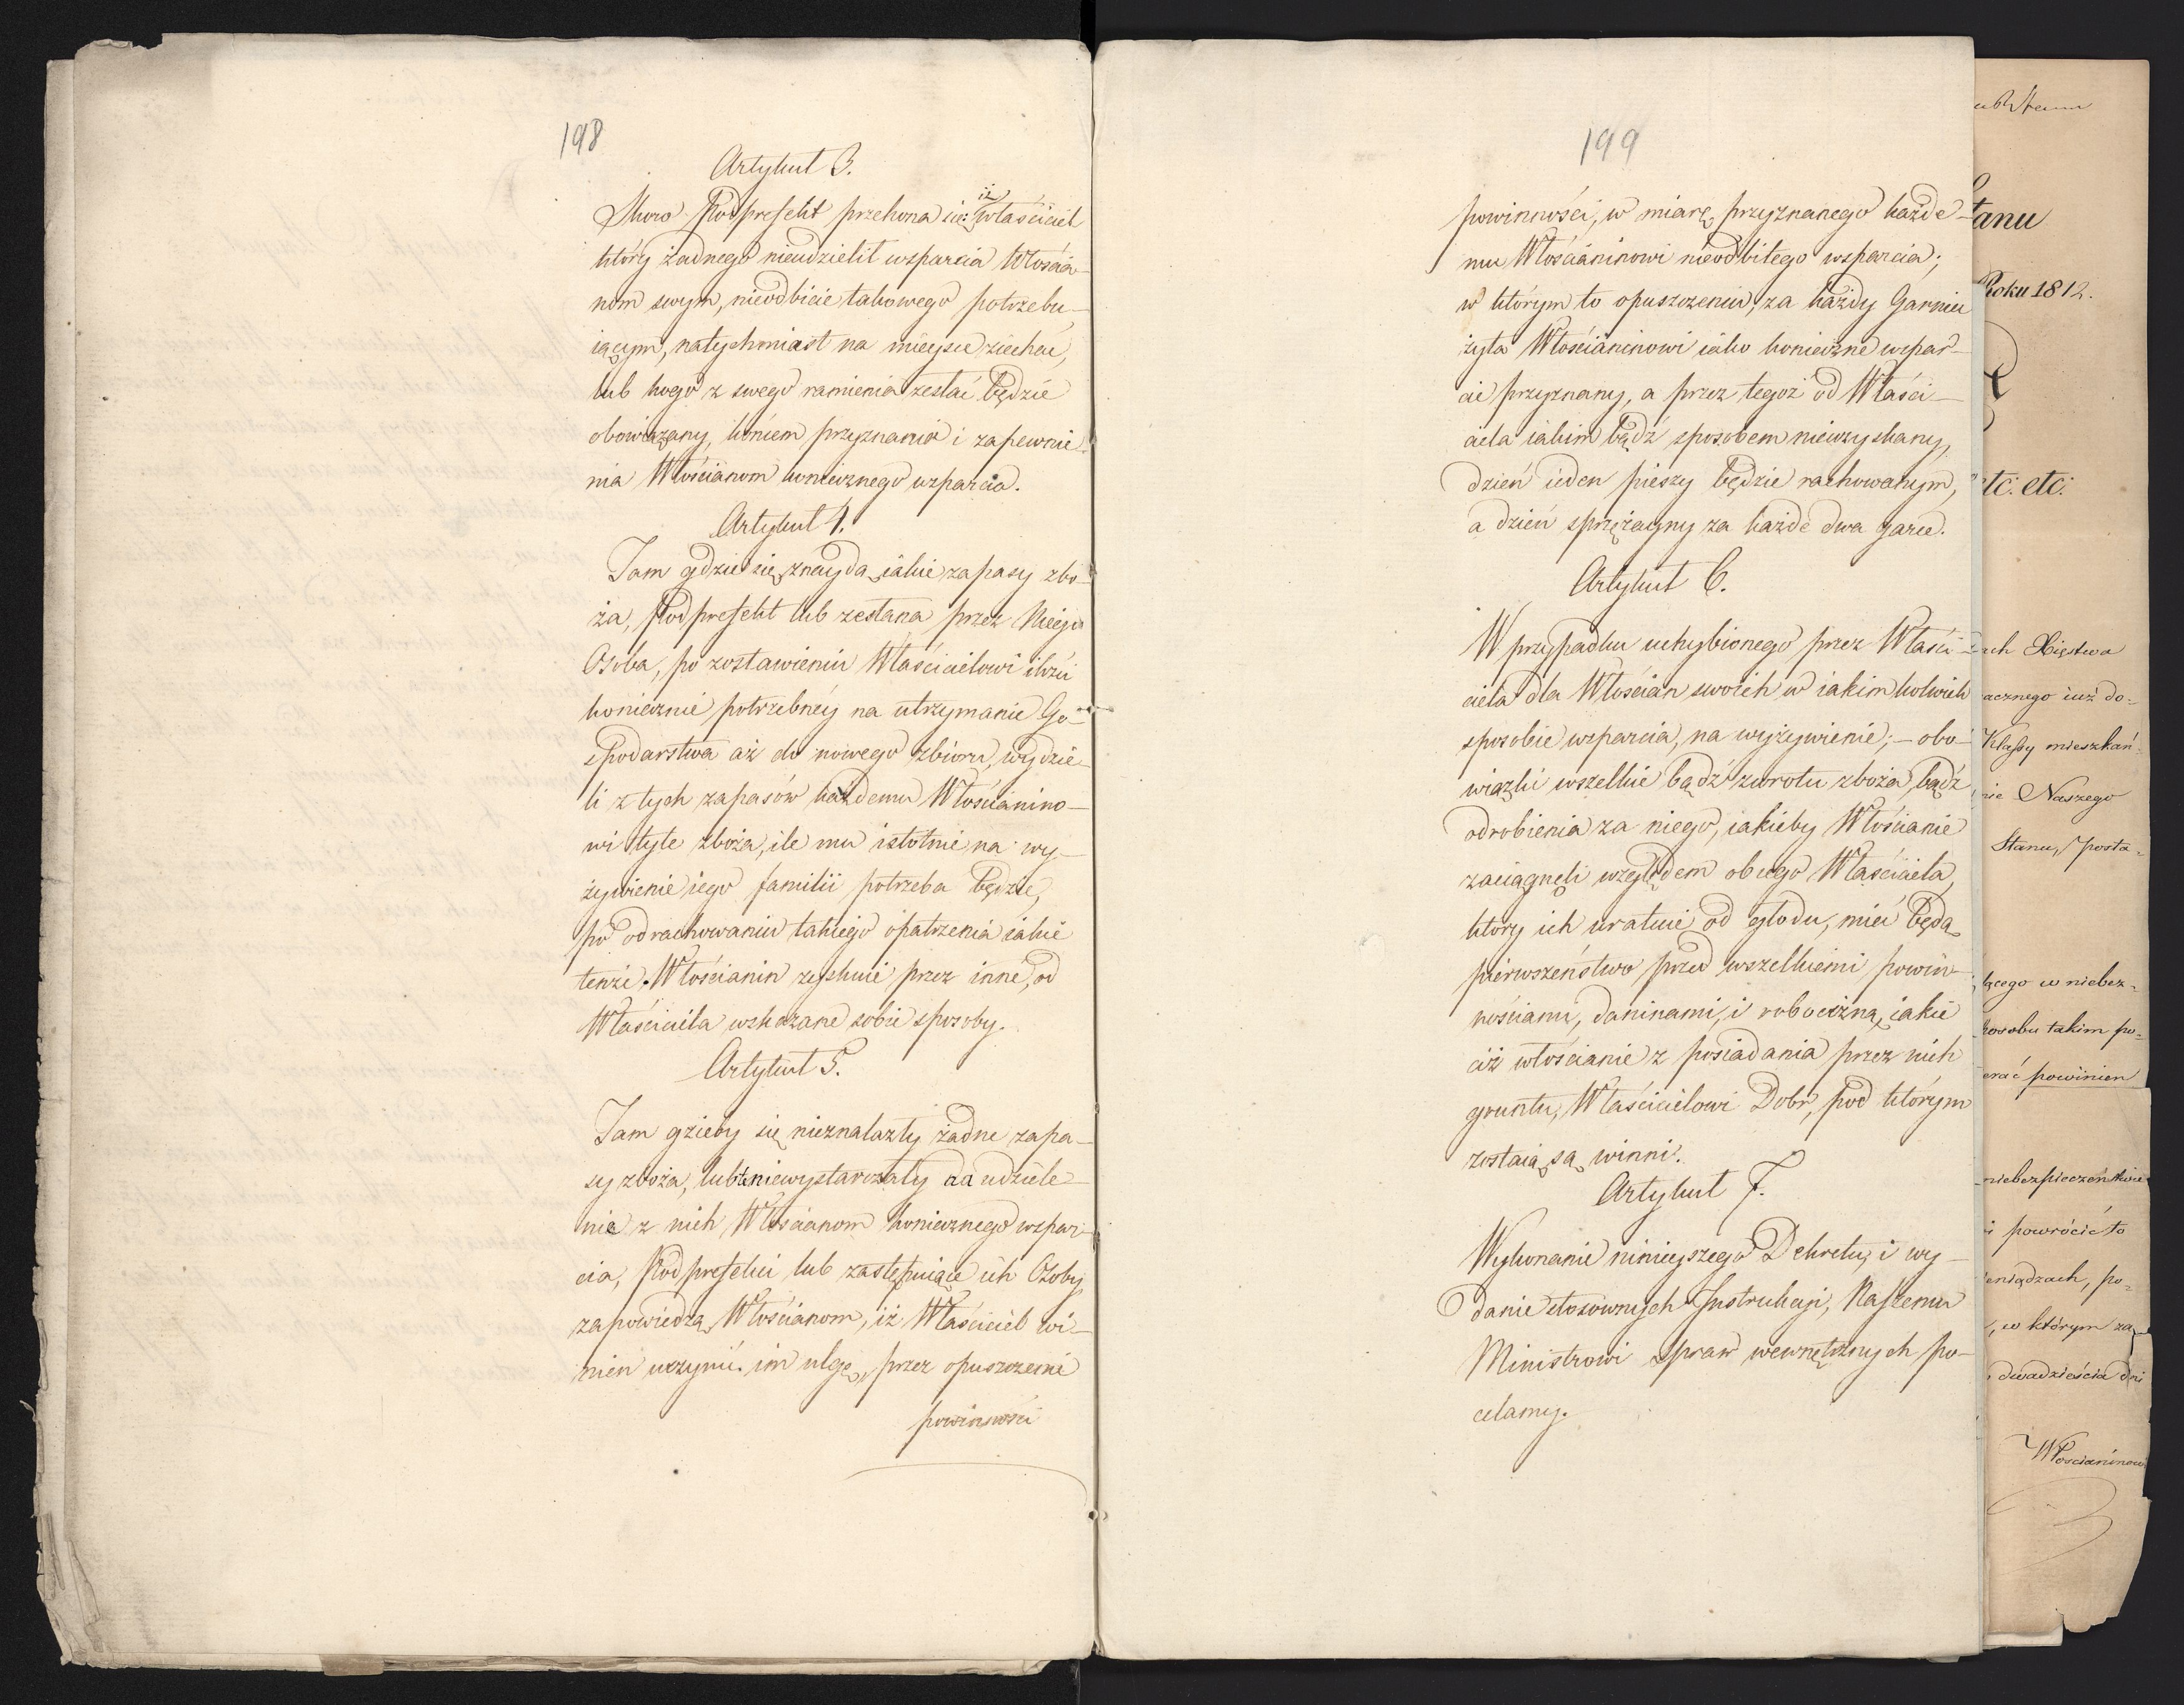 198
Artykuł 3.
Skoro Podprefekt przekona się iż właściciel
który żadnego nieudzielił wsparcia Włościa-
nom swym, nieodbicie takowego potrzebu-
iącym, natychmiast na mieysce ziechać,
lub kogo z swego ramienia zesłać będzie
obowiązany, końcem przyznania i zapewnie-
nia Włościanom koniecznego wsparcia.
Artykuł 4.
Tam gdzie się znayda iakie zapasy zbo-
ża, Podprefekt lub zesłana przez Niego
Osoba, po zostawieniu Właścicielowi ilości
koniecznie potrzebnéy na utrzymanie Go-
spodarstwa aż do nowego zbioru, wydzie-
li z tych zapasów każdemu Włościanino-
wi tyle zboża, ile mu istotnie na wy-
żywienie iego familii potrzeba będzie,
po odrachowaniu takiego opatrzenia iakie
tenże Włościanin zyskuie przez inne, od
Właściciela wskazane sobie sposoby.
Artykuł 5.
Tam gzieby się nieznalazły żadne zapa-
sy zboża, lub niewystarczały na udziele-
nie z nich Włościanom koniecznego wspar-
cia, Podprefekci lub zastępuiące ich Osoby
zapowiedzą Włościanom, iż Właściciel wi-
nien uczynić im ulgę, przez opuszczenie
powinności
199
powinności, w miarę przyznanego każde-
mu Włościaninowi nieodbitego wsparcia;
w którym to opuszczeniu, za każdy Garniec
żyta Włościaninowi iako konieczne wspar-
cie przyznany, a przez tegoż od Właści-
ciela iakim bądź sposobem nieuzyskany,
dzień ieden pieszy będzie rachowanym,
a dzień sprzężayny za każde dwa garce.
Artykuł 6.
W przypadku uchybionego przez Właści-
ciela dla Włościan swoich w iakimkolwiek
sposobie wsparcia, na wyżywienie; – obo-
wiązki wszelkie bądź zwrotu zboża, bądź
odrobienia za niego, iakieby Włościanie
zaciągnęli względem obcego Właściciela,
który ich uratuie od głodu, mieć będą
pierwszeństwo przed wszelkiemi powin-
nościami, daninami, i robocizną, iakie
ciż włościanie z posiadania przez nich
gruntu, Właścicielowi Dobr, pod którym
zostaią, są winni.
Artykuł 7.
Wykonanie ninieyszego Dekretu, i wy-
danie stosownych Instrukcji, Naszemu
Ministrowi Spraw wewnętrznych po-
celamy.
tanu
Roku 1812.
etc. etc.
ach Xięstwa
acznego iuż do-
Klassy mieszkań-
nie Naszego
Stanu, posta-
iącego w niebez-
posobu takim po-
erać powinien
niebezpieczeństwie
i powrócić to
eniądzach, po-
, w którym za
dwadzieścia dni
Włościaninow